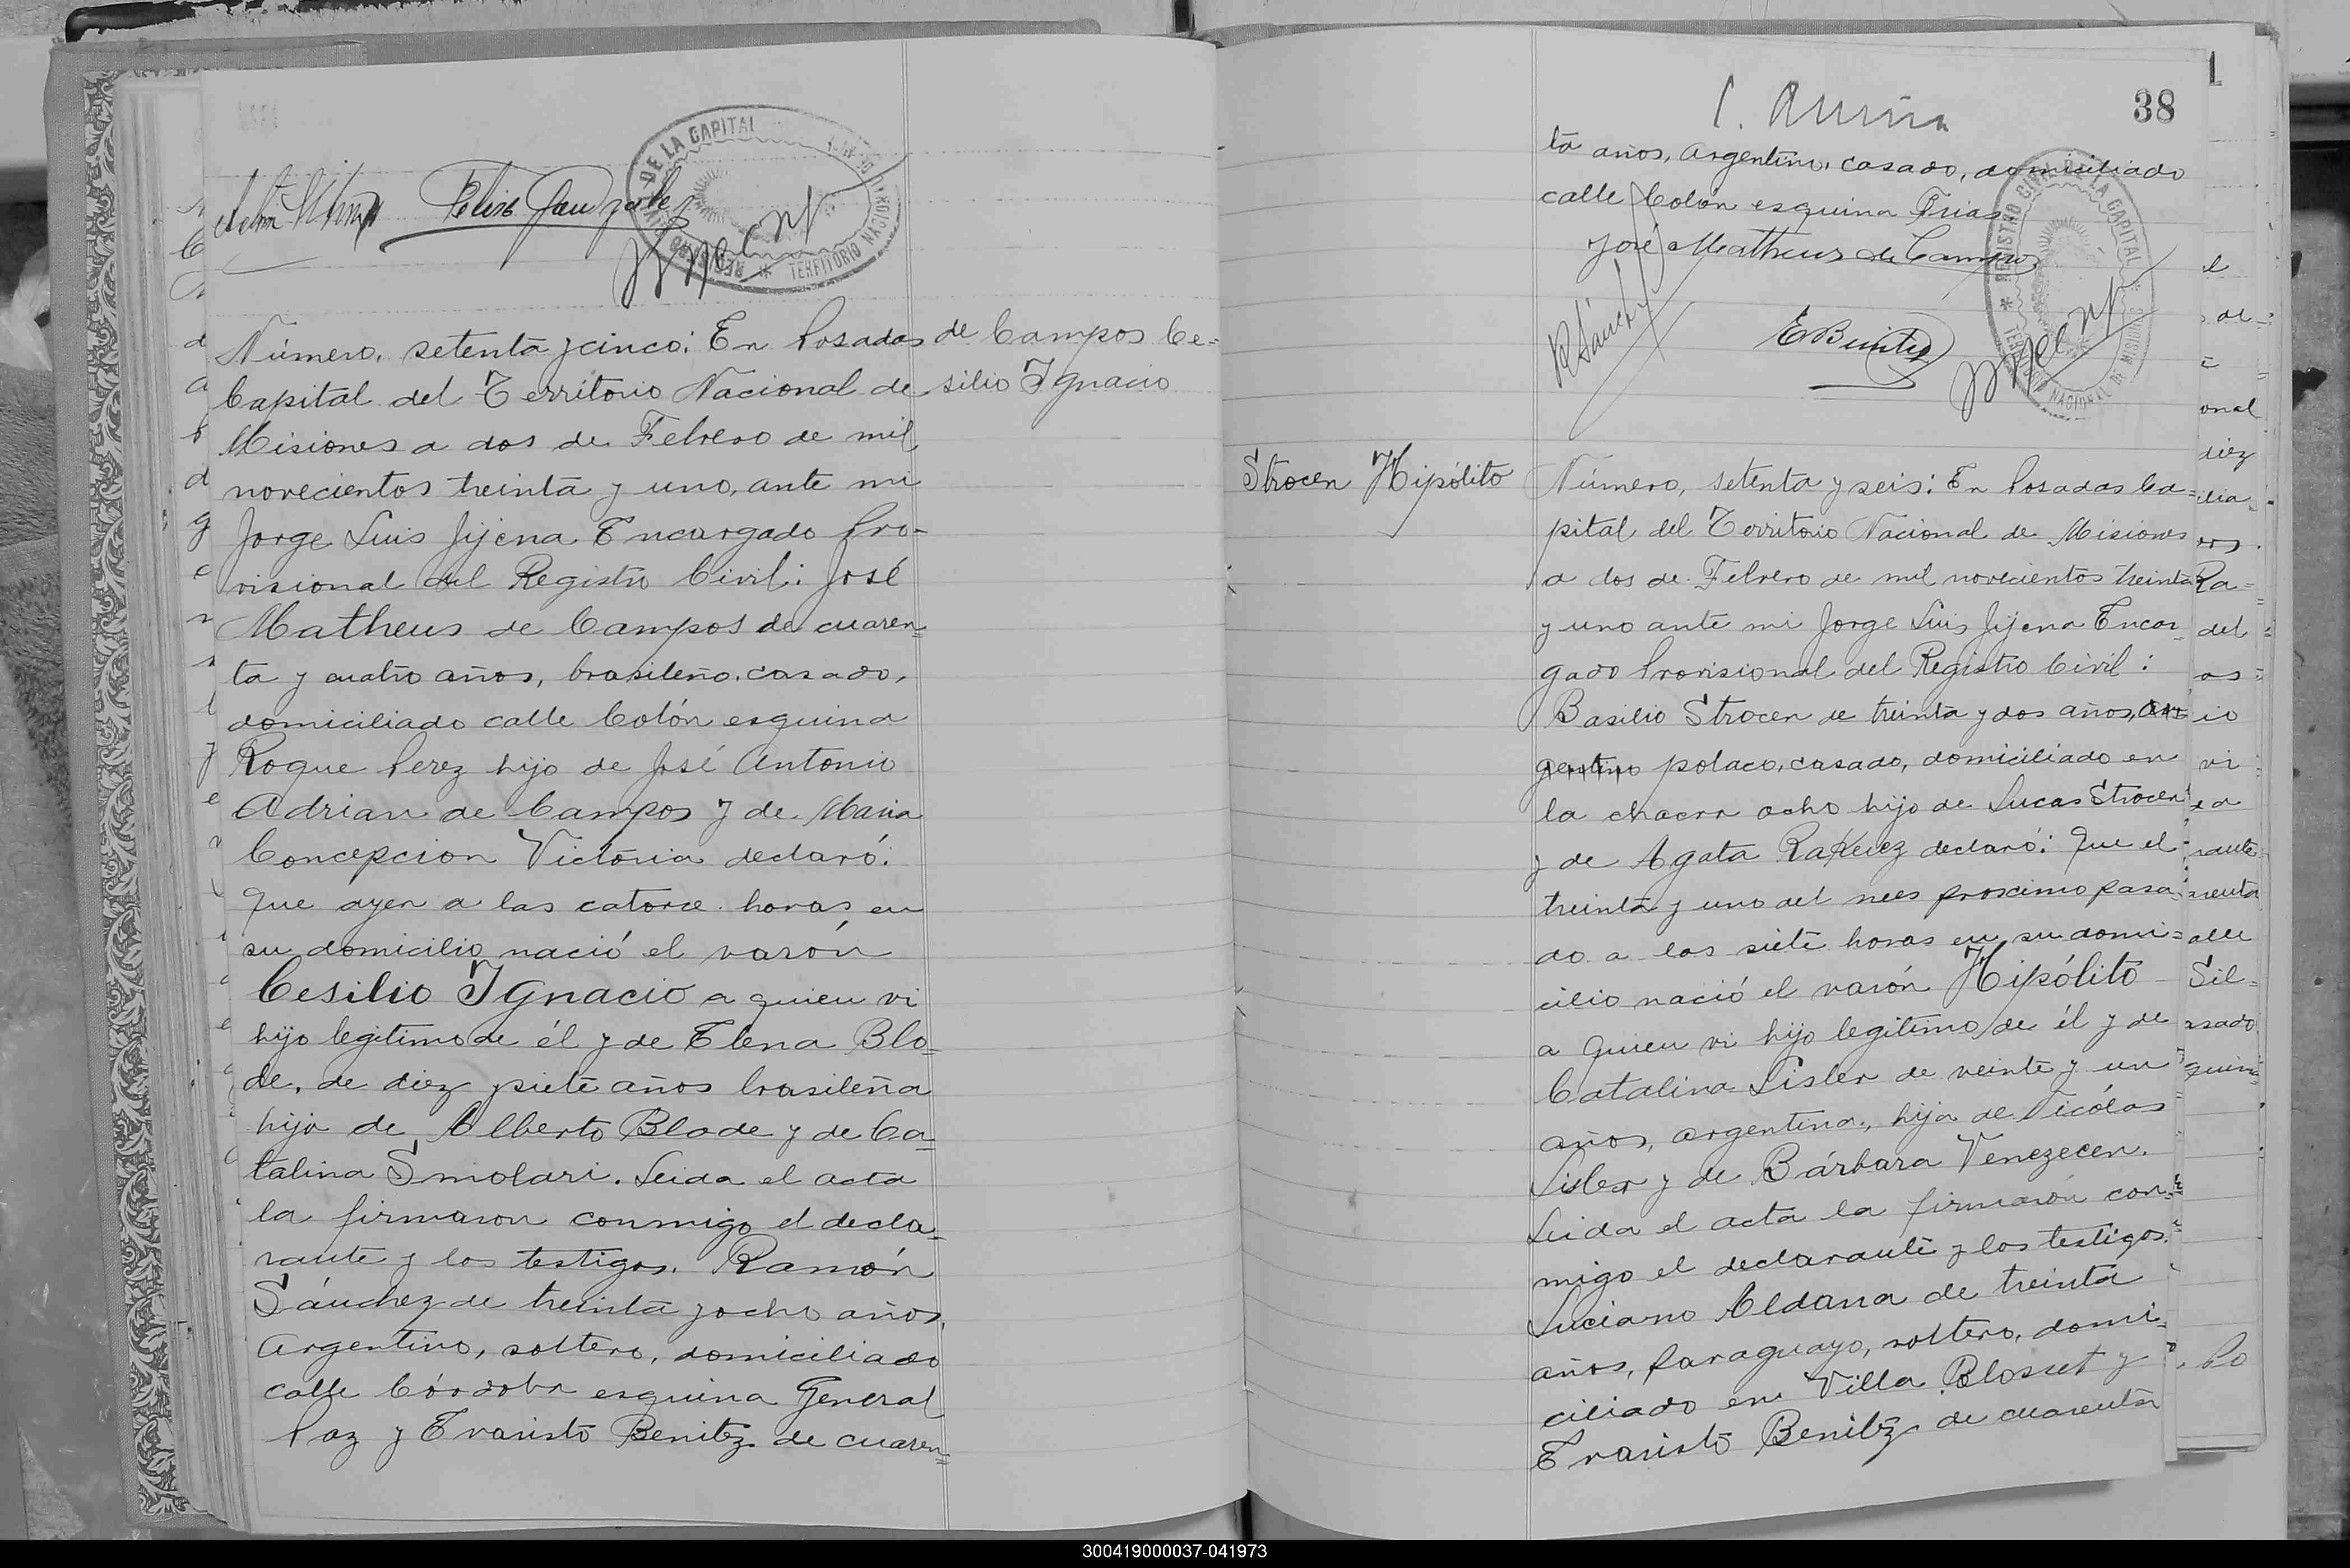 DE LA CAPITAL
TERRITORIO NACIONAL
REGISTRO
Felix Gonzalez
Número, setenta y cinco: En Posadas
Capital del Territorio Nacional de
Misiones a dos de Febrero de mil
novecientos treinta y uno, ante mi
Jorge Luis Jijena Encargado Pro-
visional del Registro Civil: José
Matheus de Campos de cuaren=
ta y cuatro años, brasileño, casado,
domiciliado calle Colón esquina
Roque Perez hijo de José Antonio
Adrian de Campos y de Maria
Concepcion Victoria declaró:
Que ayer a las catorce horas en
su domicilio nació el varón
Cesilio Ignacio a quien vi
hijo legitimo de él y de Elena Blo=
de, de diez y siete años brasileña
hija de Alberto Blode y de Ca=
talina Smolari. Leida el acta
la firmaron conmigo el decla=
rante y los testigos. Ramón
Sánchez de treinta y ocho años,
Argentino, soltero, domiciliado
calle Córdoba esquina General
Paz y Evaristo Benitez de cuaren=
de Campos Ce=
silio Ignacio
38
ta años, Argentino, casado, domiciliado
calle Colón esquina Frias
José Matheus de Campos
R Sánchez
E Benitez
REGISTRO CIVIL DE LA CAPITAL
TERRITORIO NACIONAL DE MISIONES
Strocen Hipólito
Número, setenta y seis: En Posadas Ca=
pital del Territorio Nacional de Misiones
a dos de Febrero de mil novecientos treinta
y uno ante mi Jorge Luis Jijena Encar=
gado Provisional del Registro Civil:
Basilio Strocen de treinta y dos años, ar=
gentino polaco, casado, domiciliado en
la chacra ocho hijo de Lucas Strocen
y de Agata Rakecez declaró: Que el
treinta y uno del mes proscimo pasa=
do a las siete horas en su domi=
cilio nació el varón Hipólito
a quien vi hijo legitimo de él y de
Catalina Lisler de veinte y un
años, argentina, hija de Nicólas
Lisler y de Bárbara Venezecen.
Leida el acta la firmarón con=
migo el declarante y los testigos.
Luciano Aldana de treinta
años, Paraguayo, soltero, domi=
ciliado en Villa Blosset y
Evaristo Benitez de cuarenta
300419000037-041973